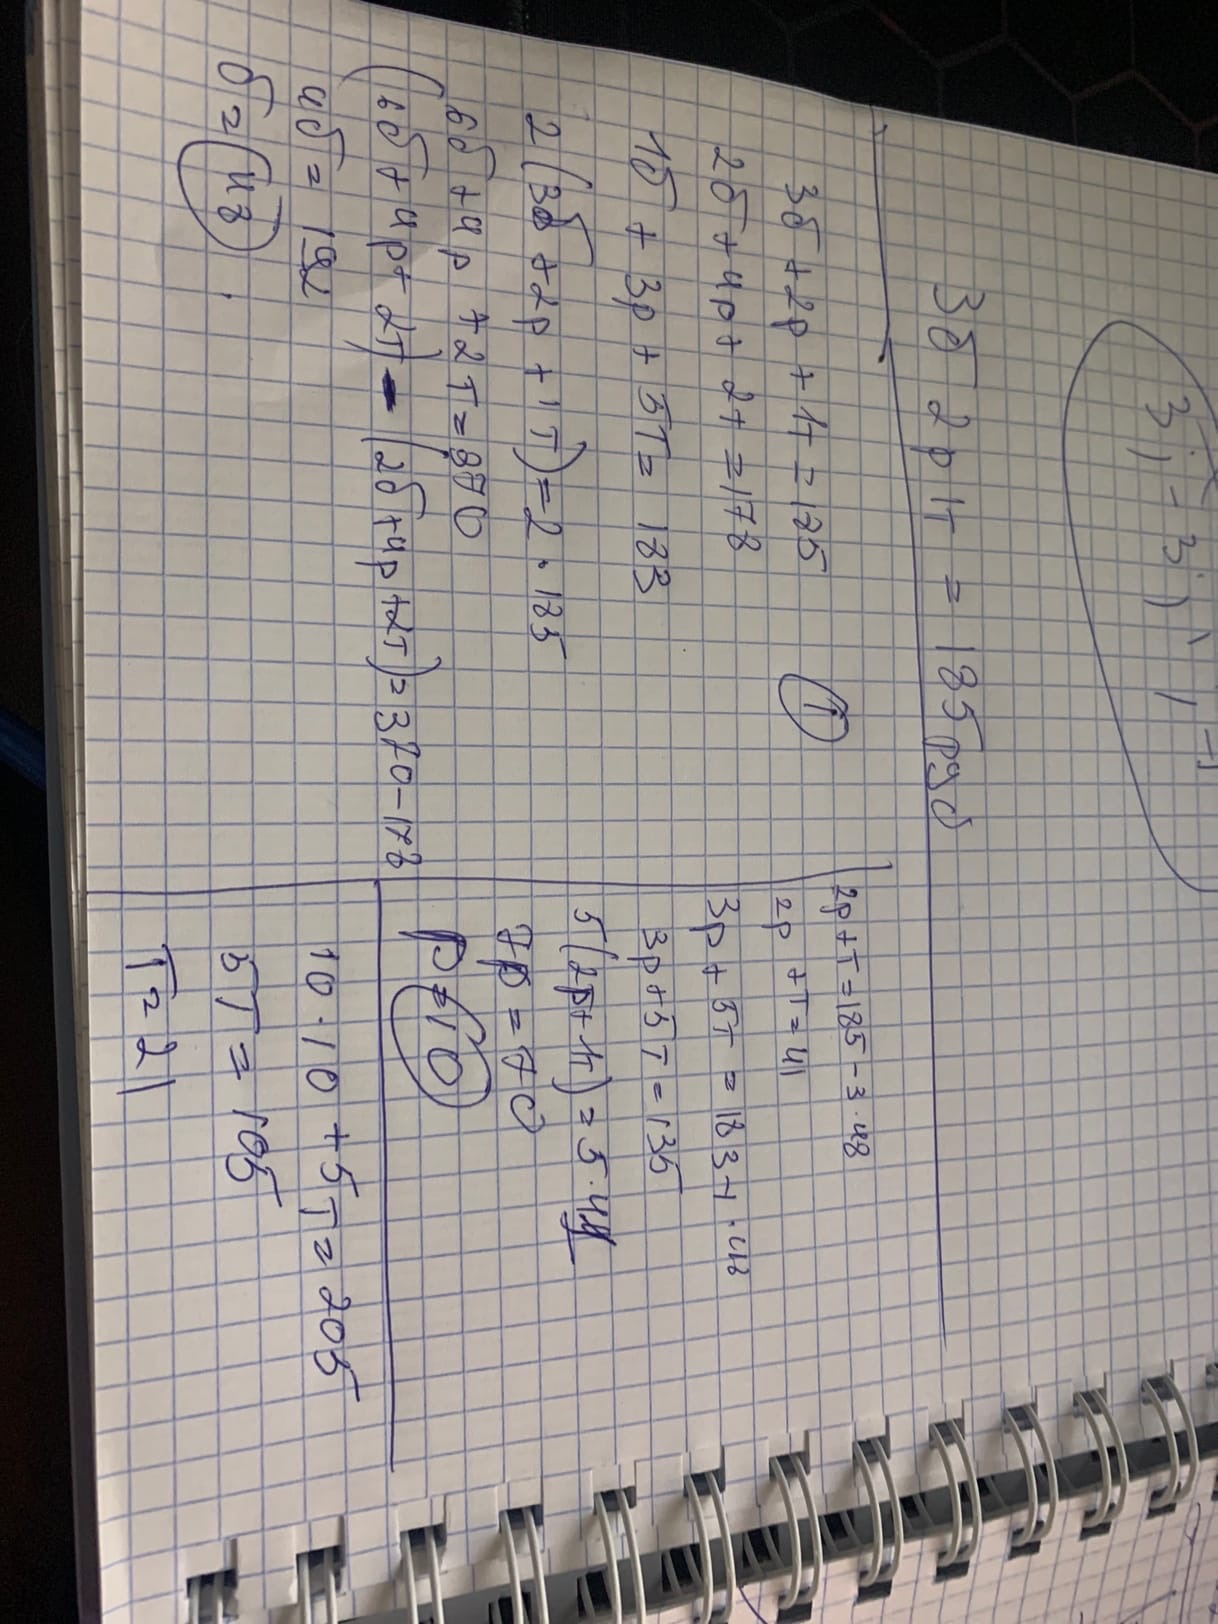 3б 2р 1т = 185 руб
3б + 2р + 1т = 185
2б + 4р + 2т = 178
1б + 3р + 5т = 183
2(3б + 2р + 1т) = 2 · 185
6б + 4р + 2т = 370
(6б + 4р + 2т) - (2б + 4р + 2т) = 370 - 178
4б = 192
б = 48
1
2р + т = 185 - 3 · 48
2р + т = 41
3р + 5т = 183 - 1 · 48
3р + 5т = 135
5(2р + 1т) = 5 · 41
7р = 70
р = 10
10 · 10 + 5т = 205
5т = 105
т = 21